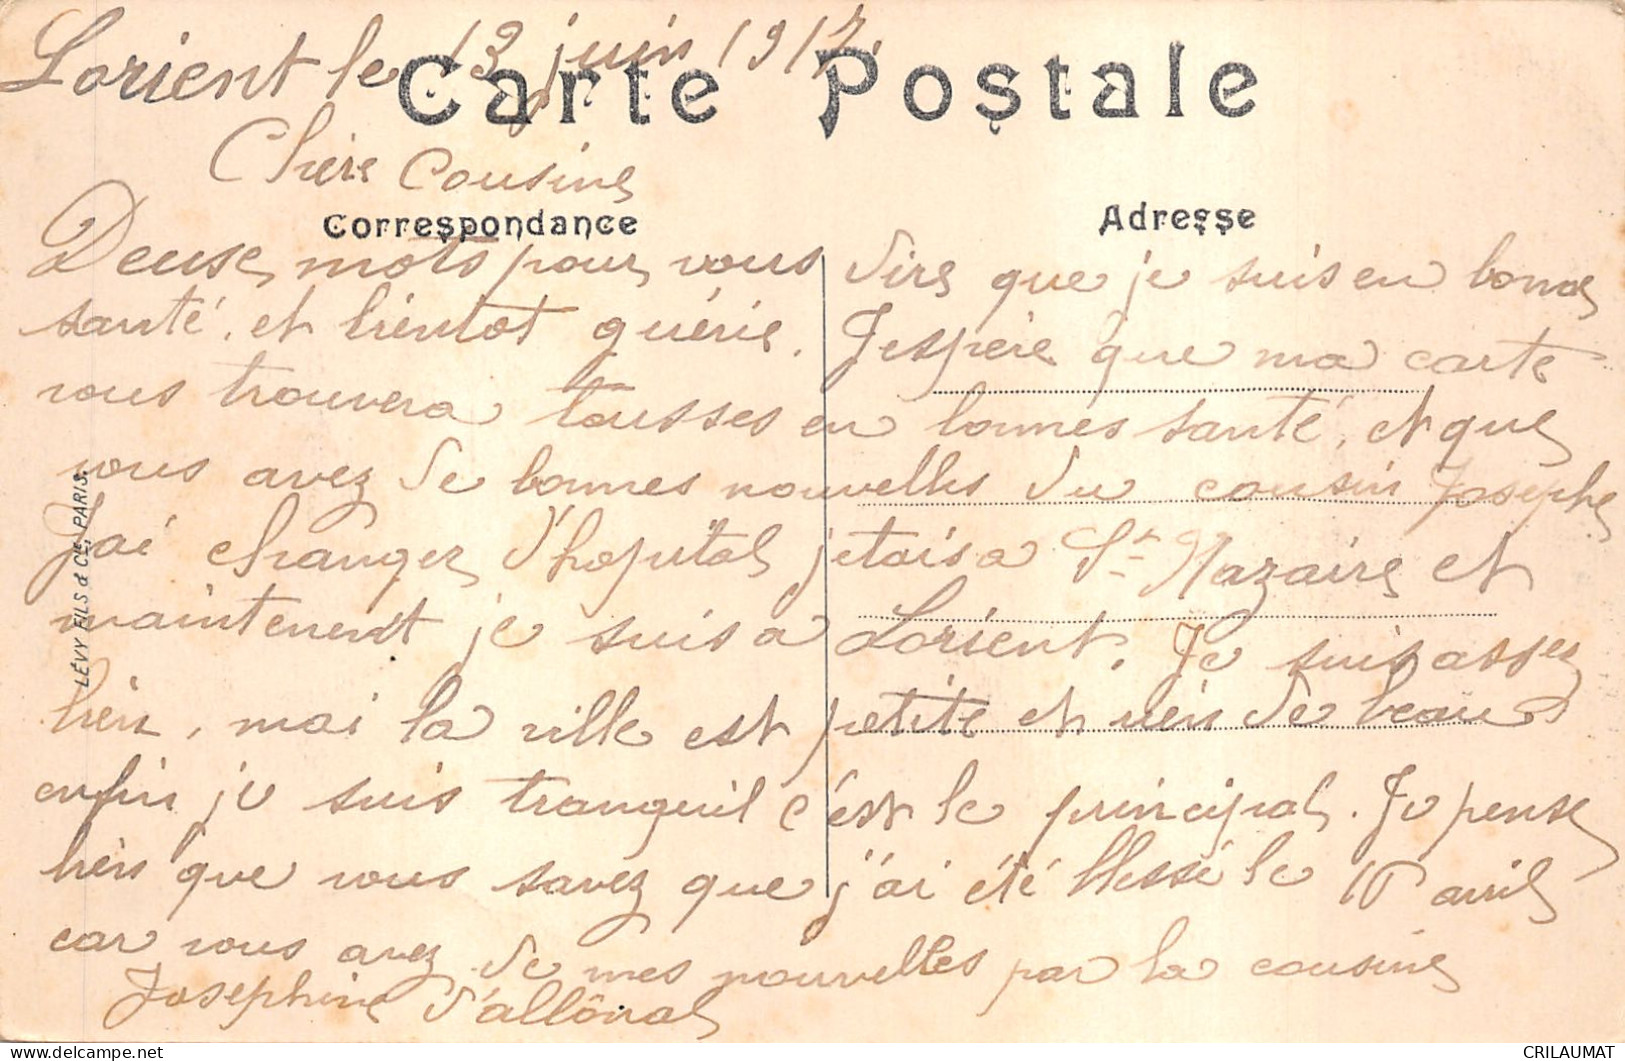 Lorient le 13 juin 1917.
Carte Postale
Chère Cousine
Correspondance
Adresse
Deuse mots pour vous dire que je suis en bonne
santé, et bientot guérie. J'espère que ma carte
vous trouvera tousses en bonnes santé, et que
vous avez de bonnes nouvelles du cousin Josephe
J'ai changer d'hopital j'etais a St Nazaire et
maintenent je suis a Lorient. Je suis assez
bien, mai la ville est petite et rien de beau
enfin je suis tranquil c'est le principal. Je pense
bien que vous savez que j'ai été blessé le avril
car vous avez de mes nouvelles par la cousine
Josephine d'allônal
LÉVY FILS & CIE, PARIS.
CRILAUMAT